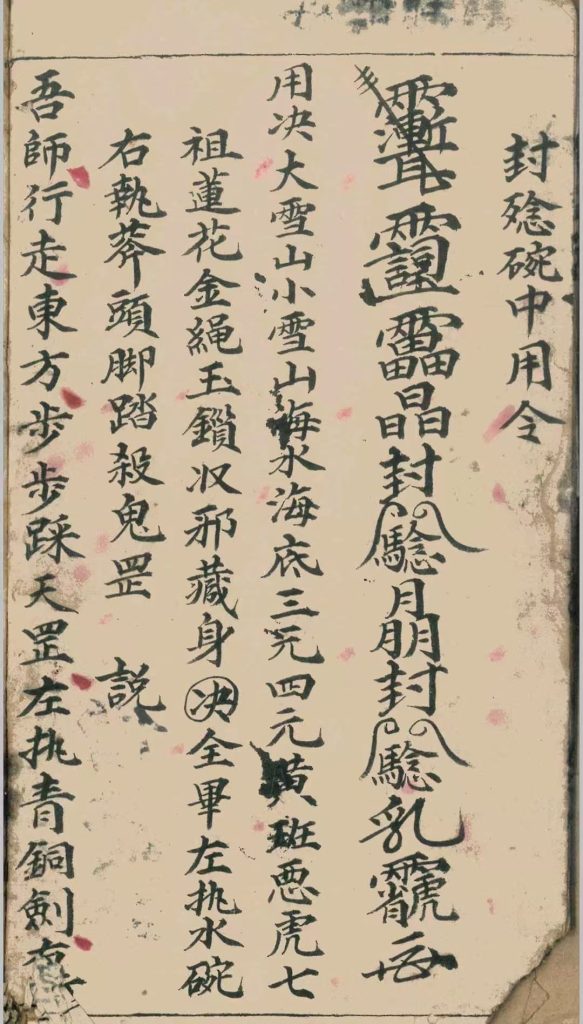 封殮碗中用令
封月朋封乳
用决大雪山小雪山海水海底三元四元黄班惡虎七
祖蓮花金繩玉鎖収邪藏身决全畢左执水碗
右執莽頭脚踏殺鬼罡 説
吾師行走東方步步踩天罡左执青銅劍右